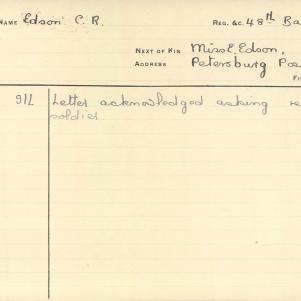 NAME Edson C. R. REG. &C. 48th Ba
NEXT OF KIN Miss E. Edson,
ADDRESS Petersburg Pos
Fi
911 Letter acknowledged asking re
soldier.